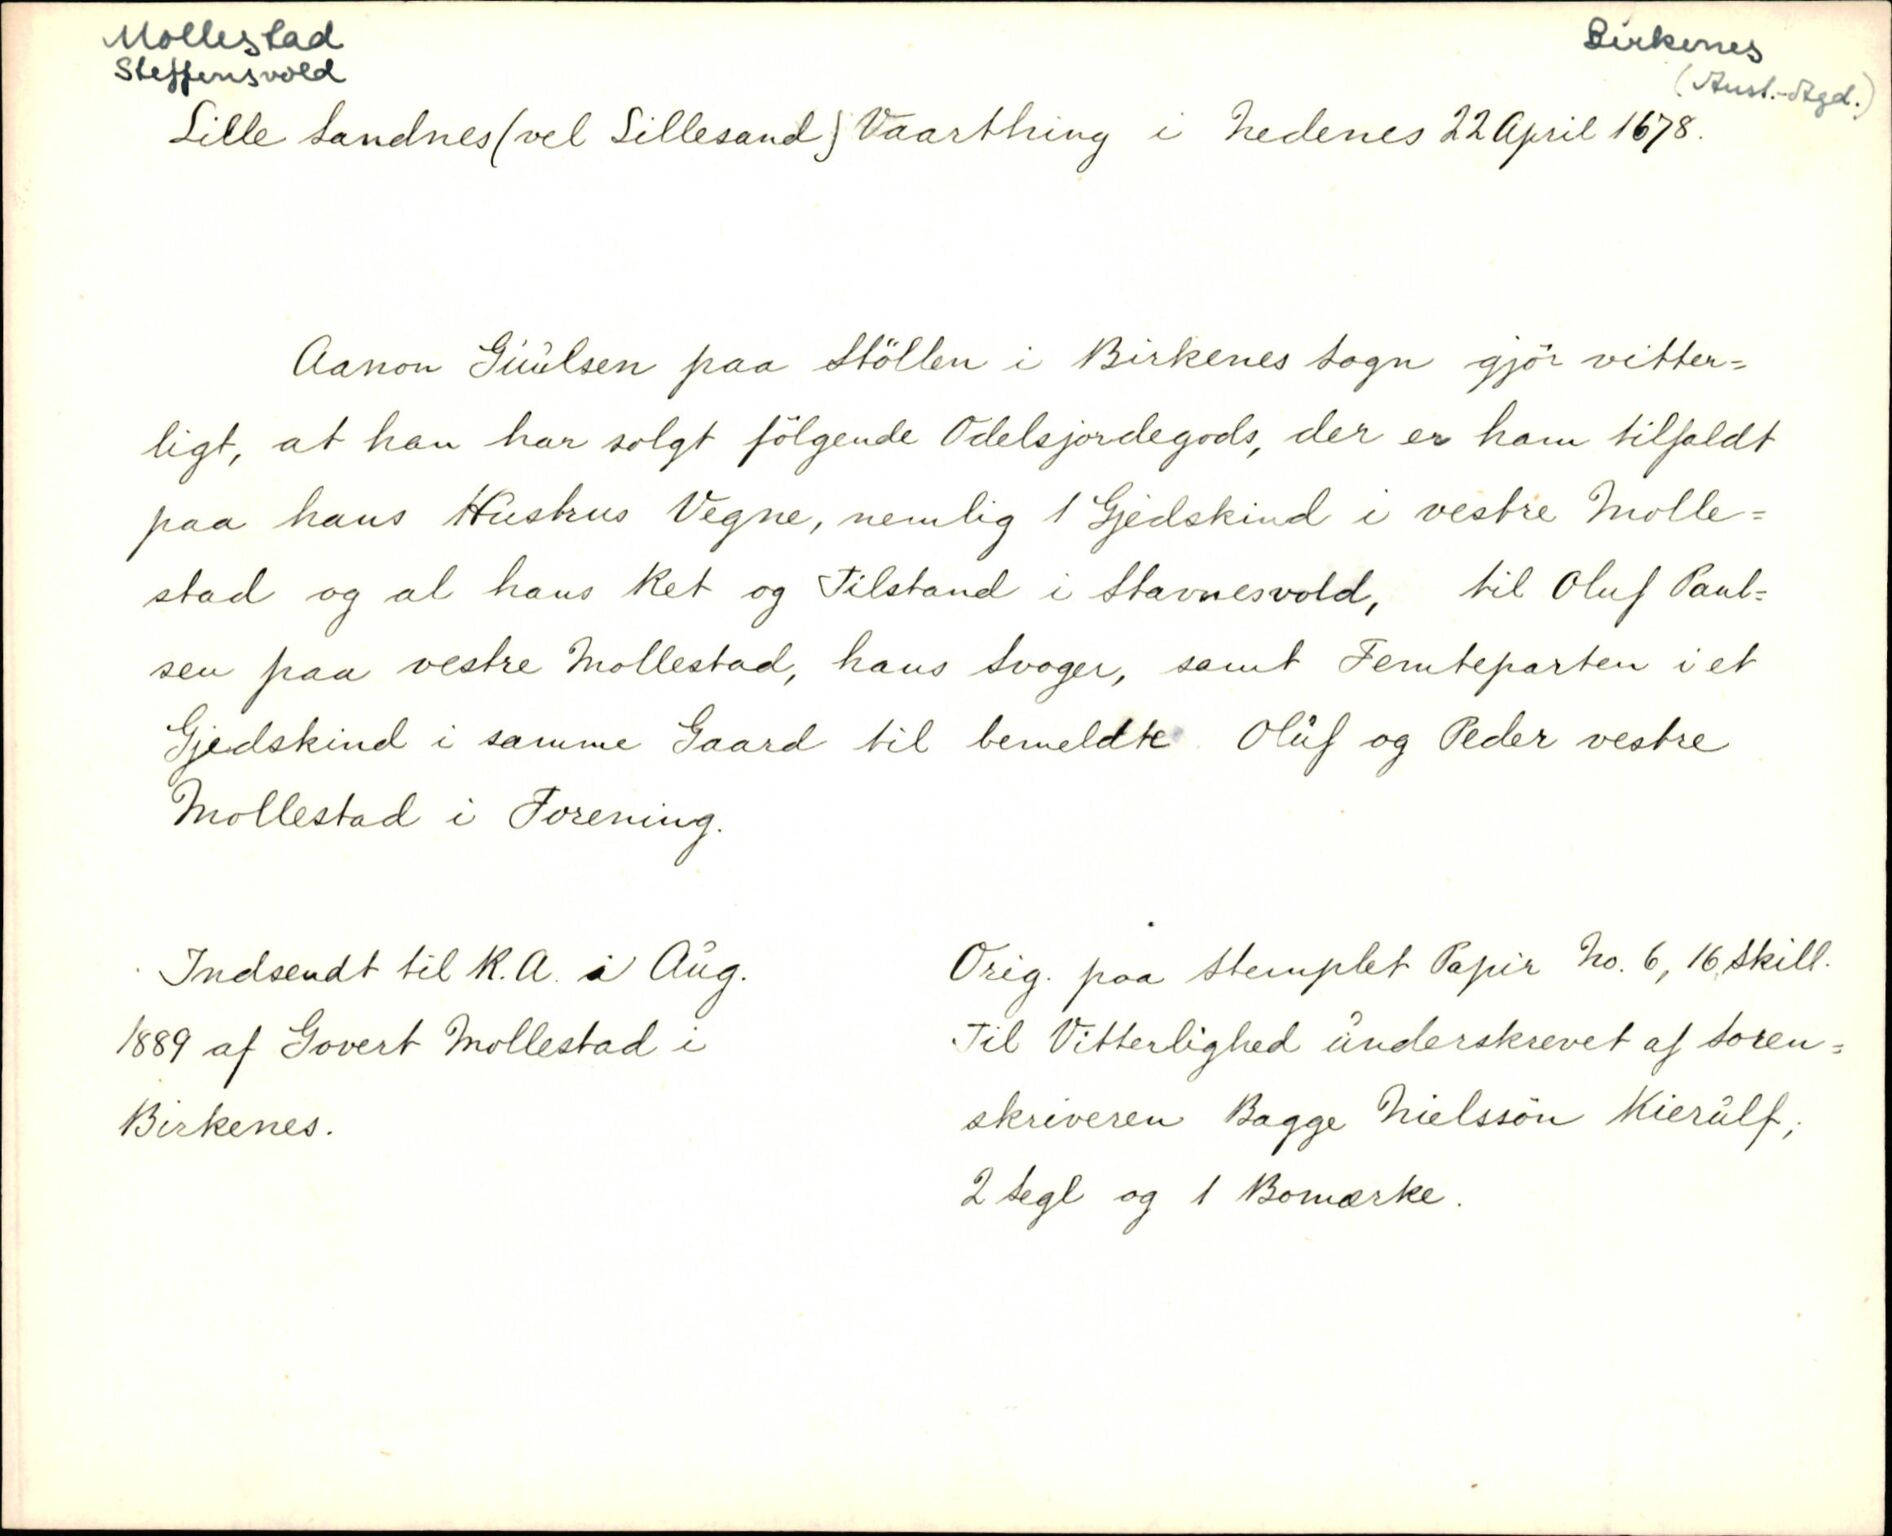 Mollestad
Steffensvold
Birkenes
(Aust.-Agd.)
Lille Sandnes (vel Lillesand) Vaarthing i Nedenes 22 April 1678.
Aanon Giuulsen paa Stöllen i Birkenes Sogn gjör vitter=
ligt, at han har solgt fölgende Odelsjordegods, der er ham tilfaldt
paa hans Hustrus Vegne, nemlig 1 Gjedskind i vestre Molle=
stad og al hans Ret og Tilstand i Stavnesvold, til Oluf Paul=
sen paa vestre Mollestad, hans Svoger, samt Femteparten i et
Gjedskind i samme Gaard til bemeldte Oluf og Peder vestre
Mollestad i Forening.
Indsendt til R.A. i Aug.
1889 af Govert Mollestad i
Birkenes.
Orig. paa Stemplet Papir No. 6, 16 Skill.
Til Vitterlighed underskrevet af Soren=
skriveren Bagge Nielssön Kierulf;
2 Segl og 1 Bomærke.